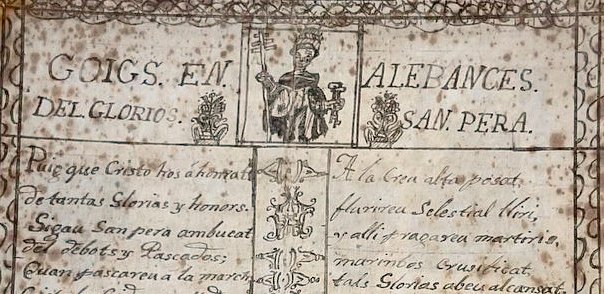 GOIGS. EN. ALEBANCES.
DEL. GLORIOS. SAN. PERA.
Puig que Cristo hos á honrat
de tantas Glorias y honors.
Sigau San pera ambucat
dels debots y Pascados;
Quan pascareu a la march
A la Creu alta posat.
flurireu Selestial lliri,
y alli pragareu martirio,
murintos crusificat.
tals Glorias abeu alcansat.